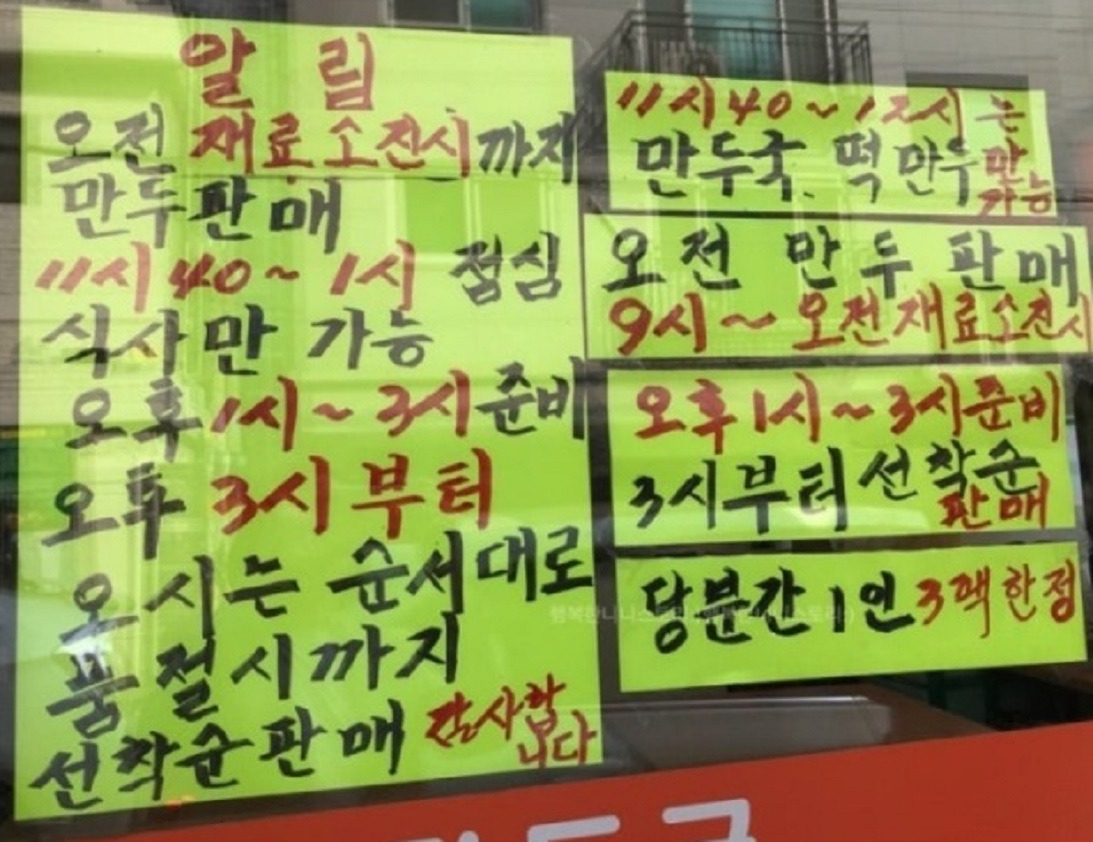 알림
오전 재료소진시까지
만두판매
11시40~1시 점심
식사만 가능
오후1시~3시준비
오후 3시부터
오시는 순서대로
품절시까지
선착순판매 감사합
니다
11시40~12시는
만두국. 떡만두만
가능
오전 만두 판매
9시~오전재료소진시
오후1시~3시준비
3시부터 선착순
판매
당분간1인3팩한정